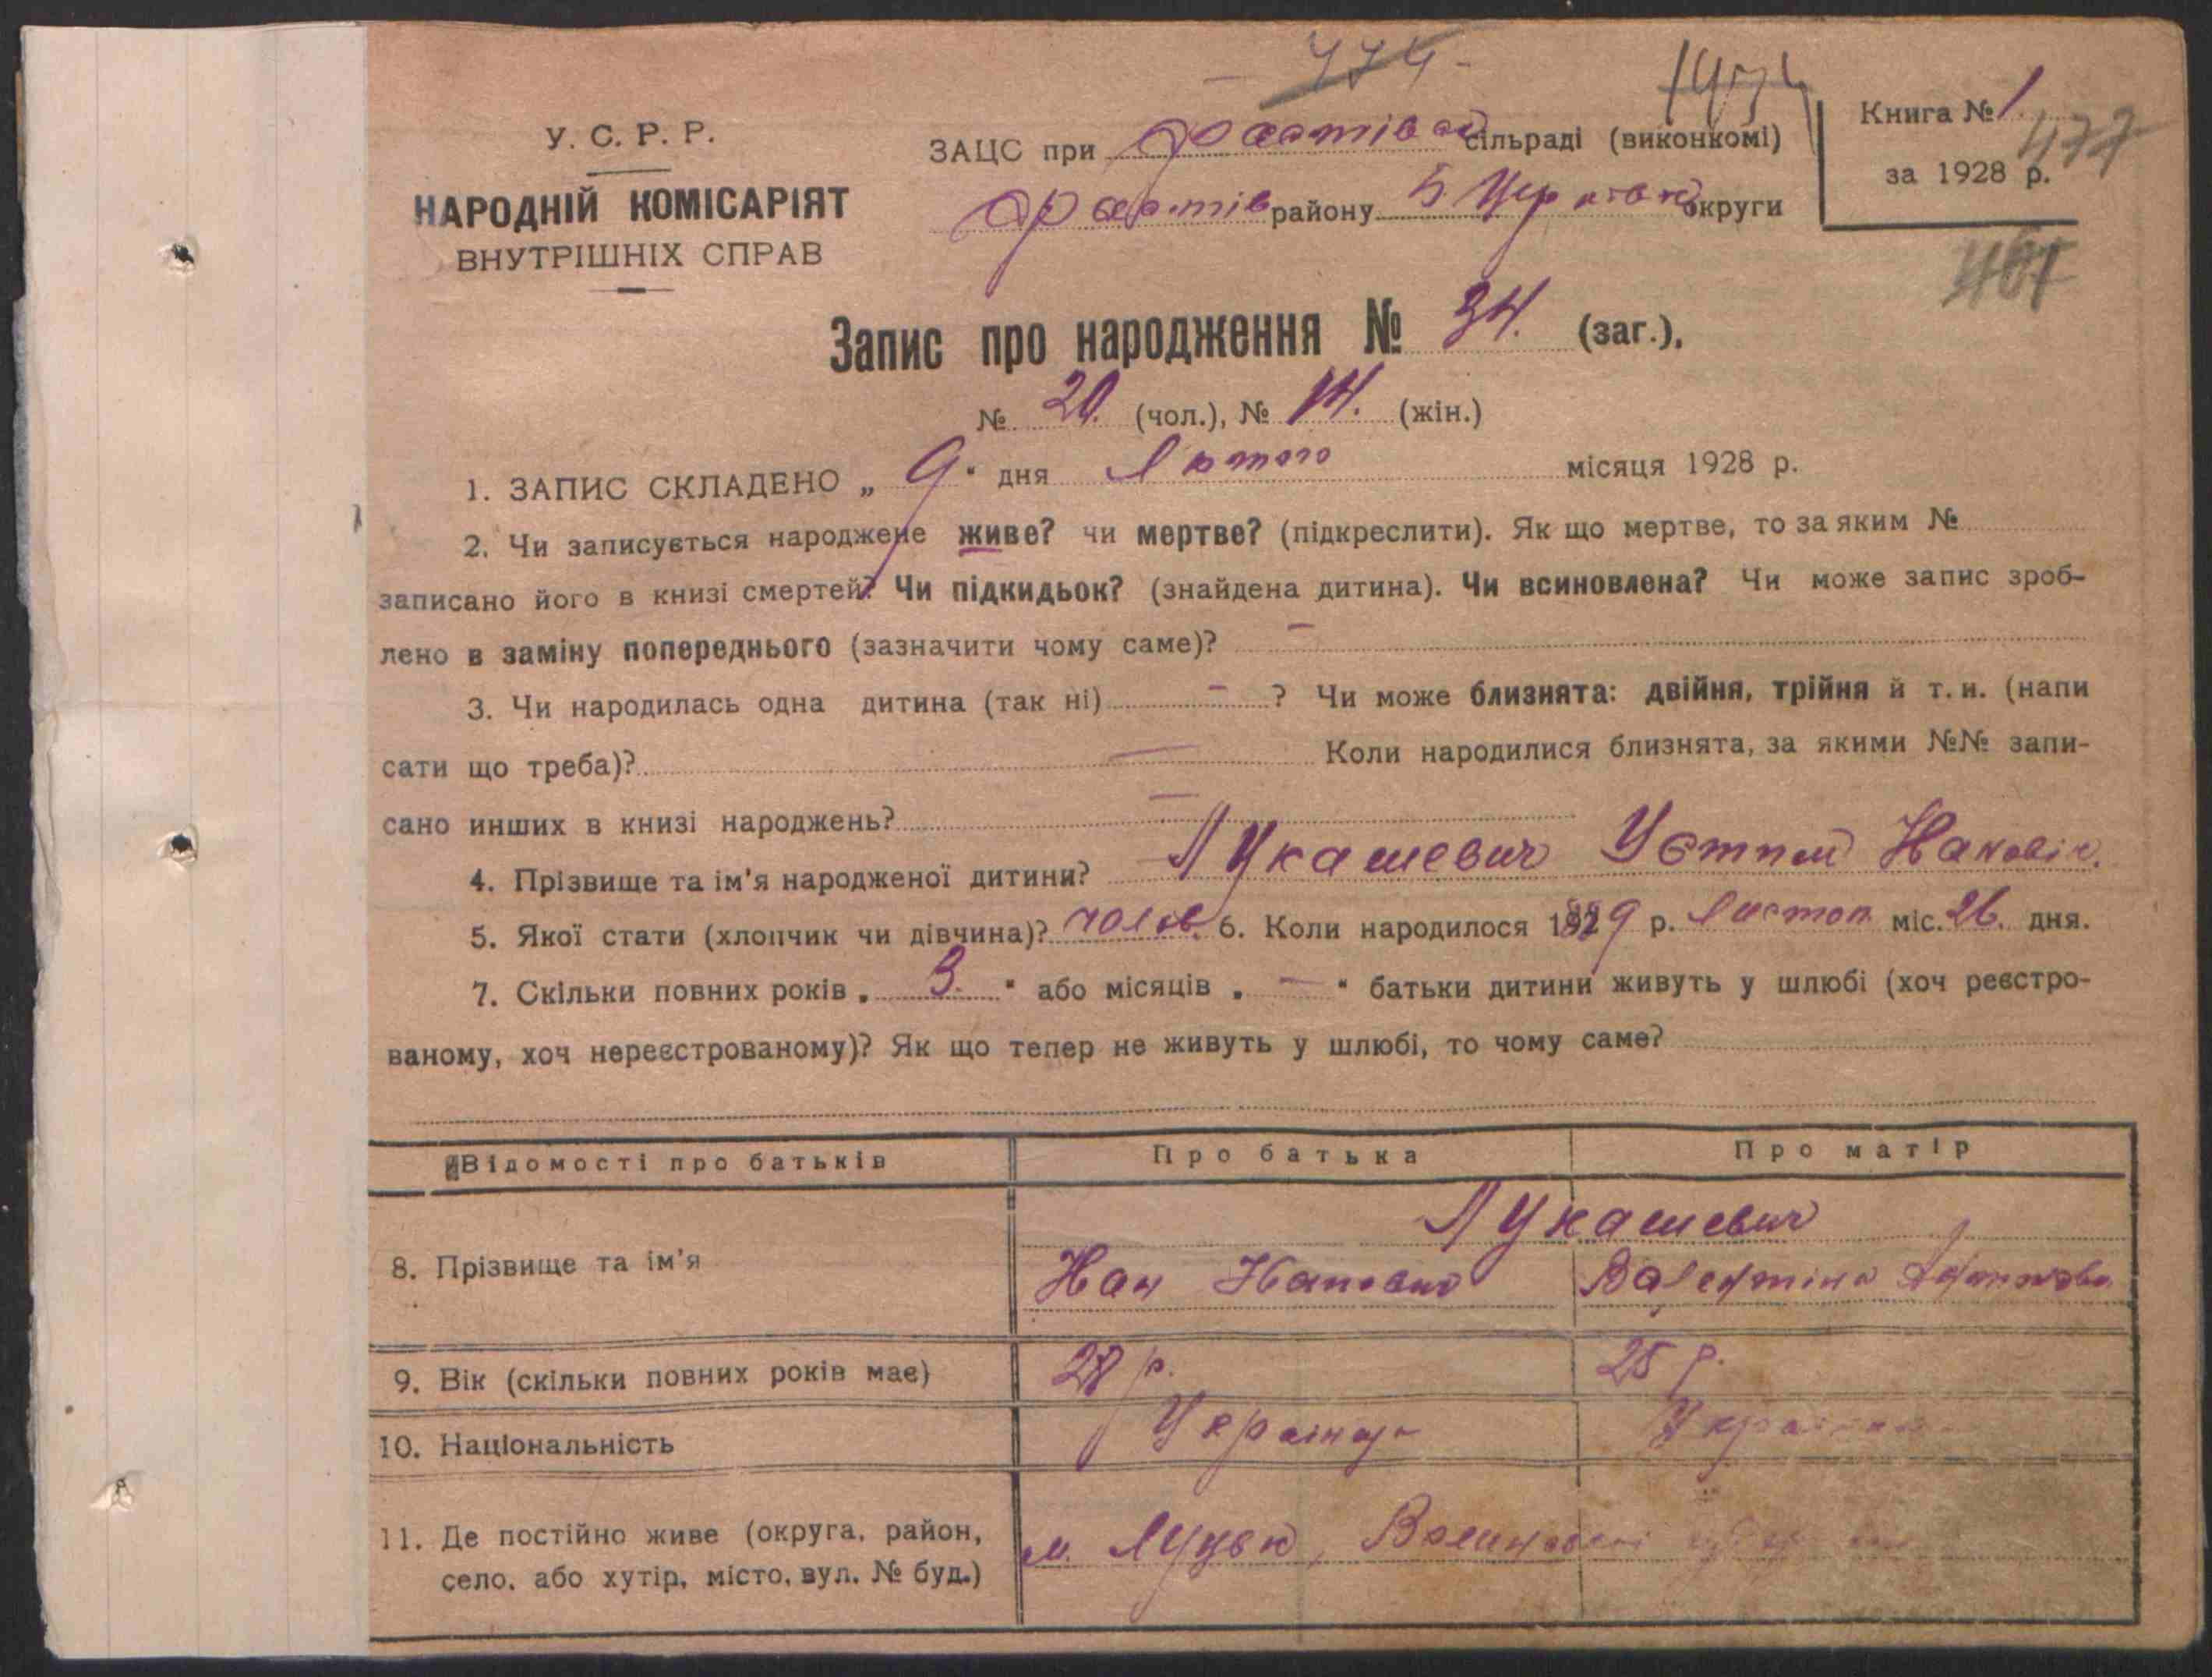 474
1474
У. С. Р. Р.
ЗАЦС при Фастівск сільраді (виконкомі)
Книга № 1.
477
НАРОДНІЙ КОМІСАРІЯТ
Фастів району Б Церківск округи
за 1928 р.
ВНУТРІШНІХ СПРАВ
Запис про народження № 34. (заг.),
№ 20. (чол.), № 14. (жін.)
1. ЗАПИС СКЛАДЕНО „ 9 “ дня Лютого місяця 1928 р.
2. Чи записується народжене живе? чи мертве? (підкреслити). Як що мертве, то за яким №
записано його в книзі смертей? Чи підкидьок? (знайдена дитина). Чи всиновлена? Чи може запис зроб-
лено в заміну попереднього (зазначити чому саме)? —
3. Чи народилась одна дитина (так ні) — ? Чи може близнята: двійня, трійня й т. и. (напи
сати що треба)? — Коли народилися близнята, за якими №№ запи-
сано инших в книзі народжень? —
4. Прізвище та ім'я народженої дитини? Лукашевич
5. Якої стати (хлопчик чи дівчина)? чолов. 6. Коли народилося 1889 р. Листоп міс. 26. дня.
7. Скільки повних років „ 3. “ або місяців „ — “ батьки дитини живуть у шлюбі (хоч реєстро-
ваному, хоч нереєстрованому)? Як що тепер не живуть у шлюбі, то чому саме?
Відомості про батьків Про батька Про матір
Лукашевич
8. Прізвище та ім'я Иван Иванович Валентина
9. Вік (скільки повних років має) 28 р. 25 р.
10. Національність Українці Українка
11. Де постійно живе (округа, район, м. Луцьк, Волинської
село, або хутір, місто, вул. № буд.)